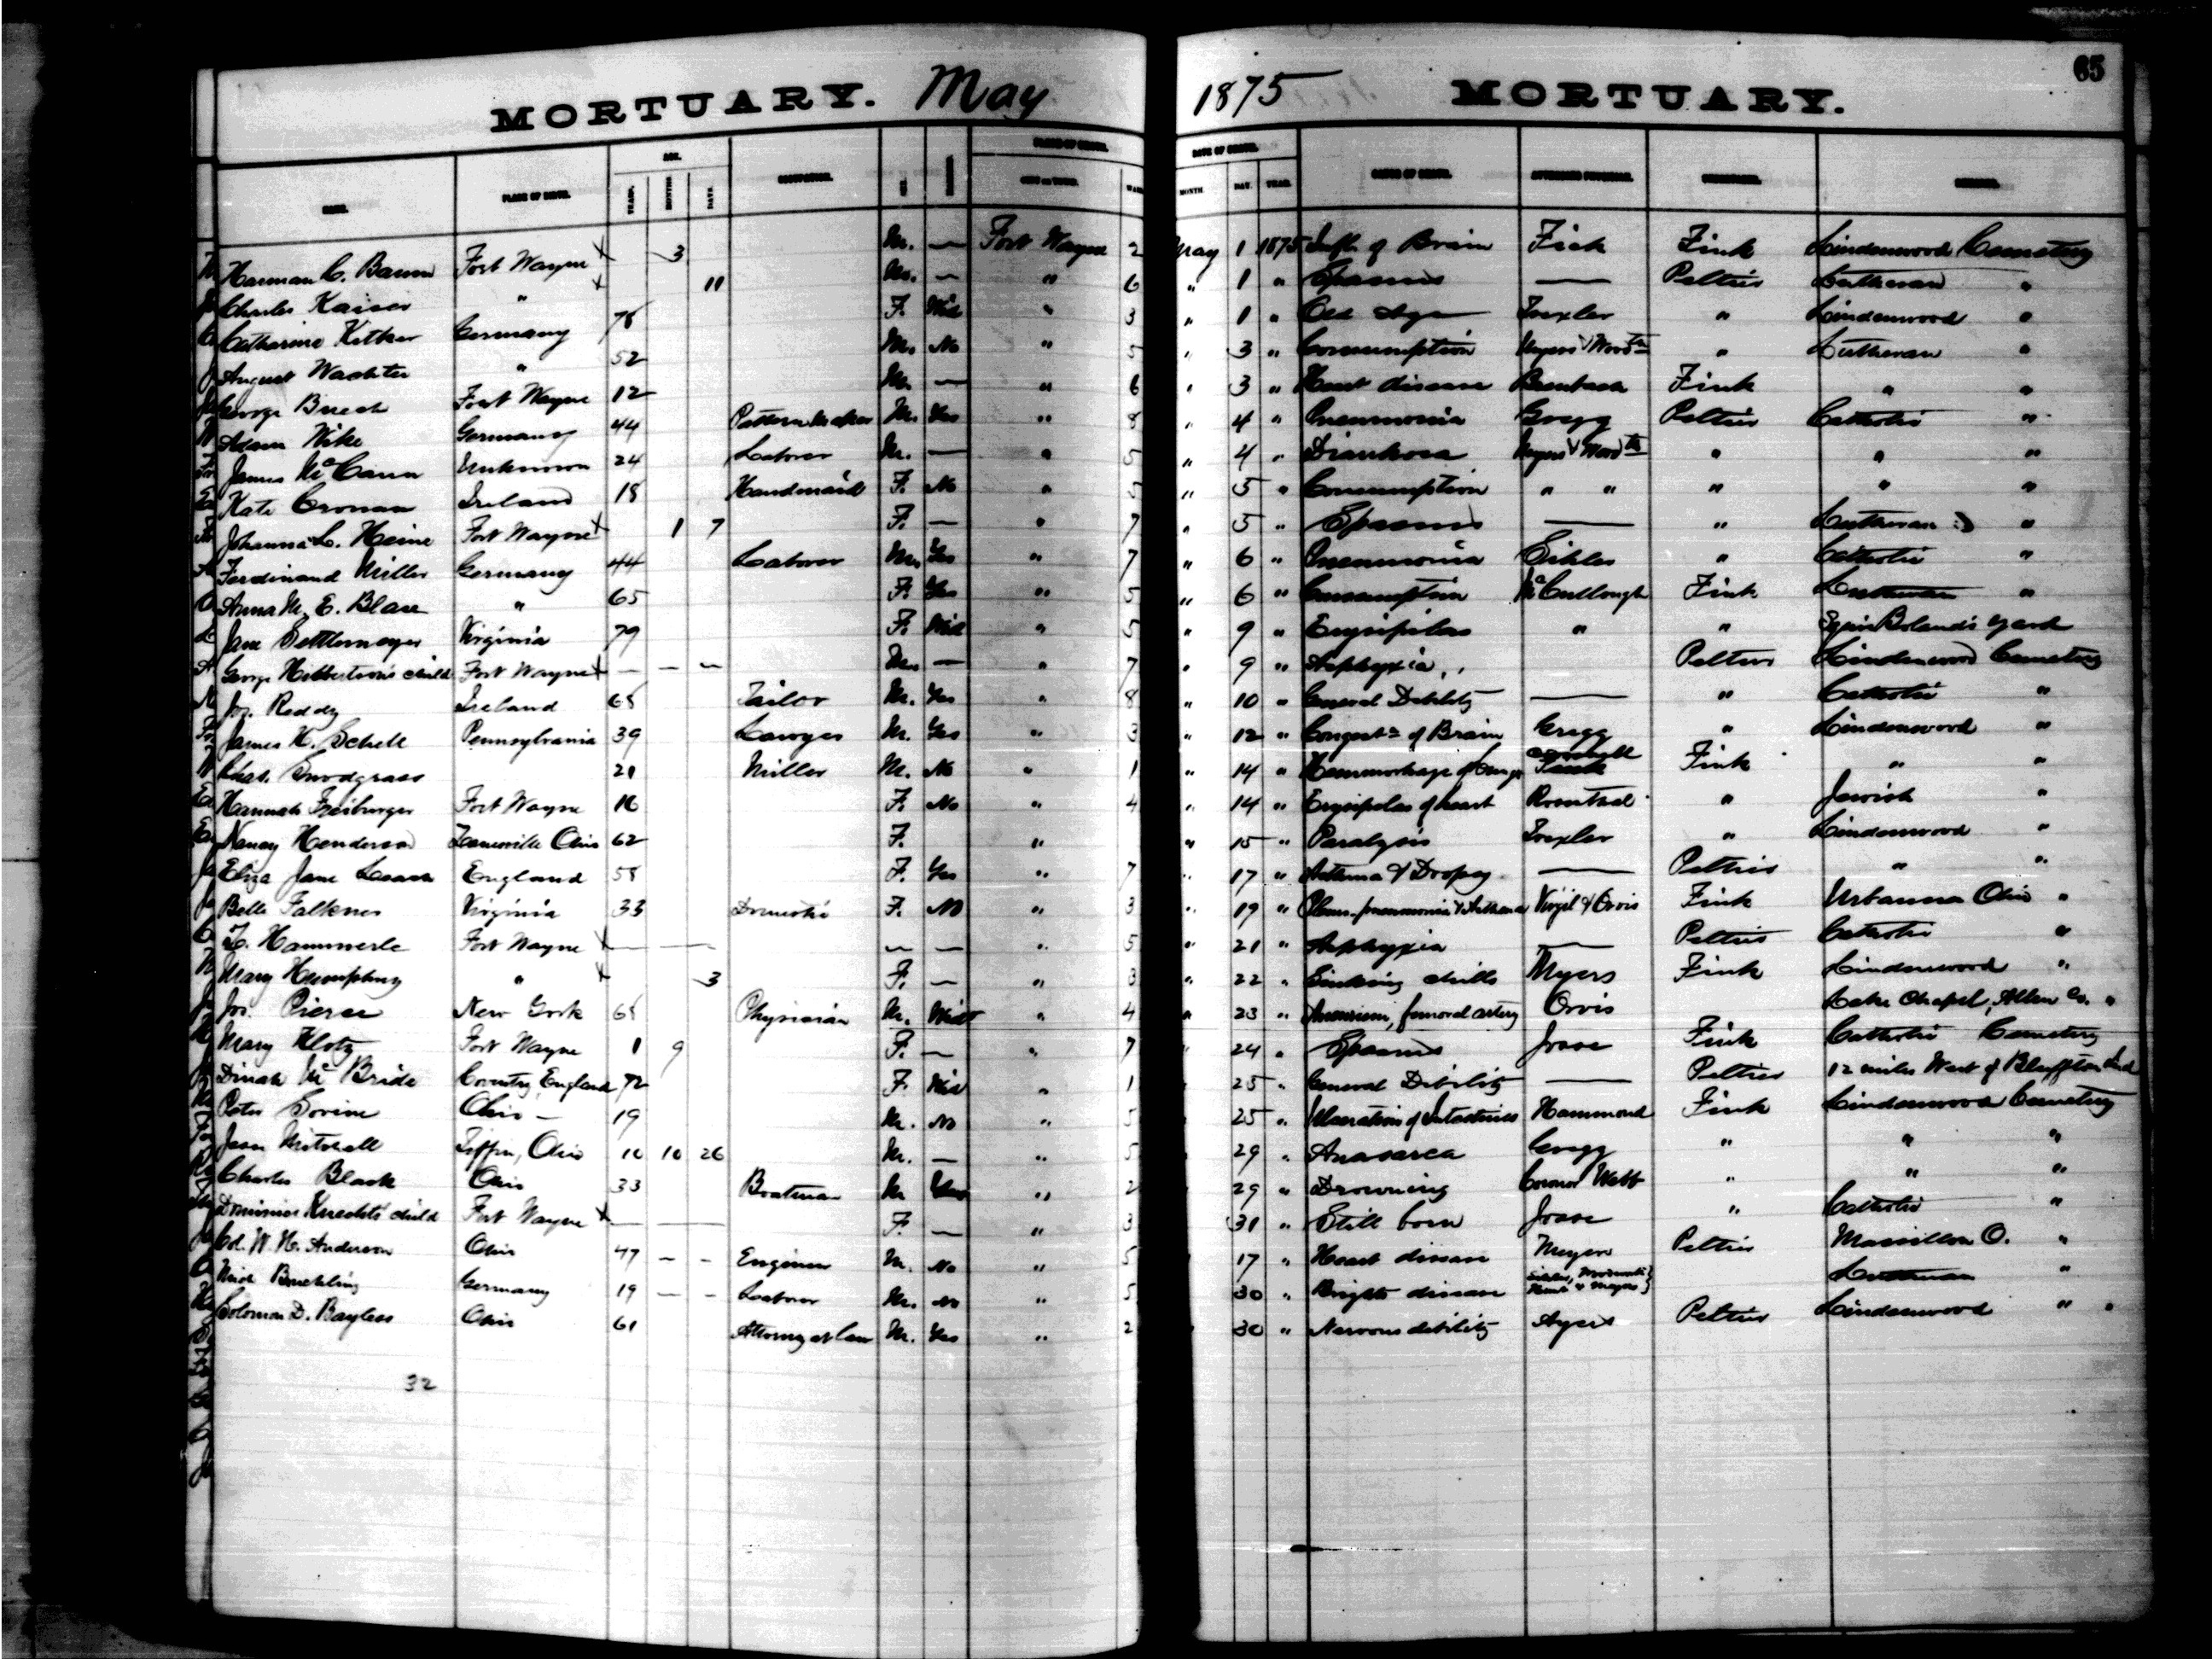 65
MORTUARY. May 1875 MORTUARY.
AGE. PLACE OF DEATH. DATE OF DEATH.
NAME. PLACE OF BIRTH. YEARS. MONTHS. DAYS. OCCUPATION. SEX. CITY OR TOWN. WARD. MONTH. DAY. YEAR. CAUSE OF DEATH. ATTENDING PHYSICIAN. UNDERTAKER.
Harman C. Baum Fort Wayne x 3 M. — Fort Wayne 2 May 1 1875 Infl. of Brain Fink Lindenwood Cemetery
Charles Kaiser " x 11 M. — " 6 " 1 " Spasms — Peltier Lutheran "
Catharine Germany 78 F. Wid " 3 " 1 " Old Age Trexler " Lindenwood "
August Wachter " 52 M. No " 5 " 3 " Consumption Myers & Woodth " Lutheran "
George Fort Wayne 12 M. — " 6 " 3 " Heart disease Fink " "
Adam Wike Germany 44 Pattern Maker M. Yes " 8 " 4 " Pneumonia Gregg Peltier Catholic "
James McCann Unknown 24 Laborer M. — " 5 " 4 " Diarrhoea Myers & Woodth " " "
Kate Cronan Ireland 18 Handmaid F. No " 5 " 5 " Consumption " " " " "
Johanna L. Heine Fort Wayne x 1 7 F. — " 7 " 5 " Spasms — " Lutheran "
Ferdinand Miller Germany 44 Laborer M. Yes " 7 " 6 " Pneumonia " Catholic "
Anna M. E. Blase " 65 F. Yes " 5 " 6 " Consumption McCullough Fink Lutheran "
Jane Settlemeyer Virginia 79 F. Wid " 5 " 9 " Erysipelas " " yard
George child Fort Wayne x — — — M. — " 7 " 9 " Asphyxia Peltier Lindenwood Cemetery
Jos. Reddy Ireland 65 Tailor M. Yes " 8 " 10 " General Debility — " Catholic "
James H. Schell Pennsylvania 39 Lawyer M. Yes " 3 " 12 " Congestn of Brain Gregg " Lindenwood "
Chas. Snodgrass 21 Miller M. No " 1 " 14 " Hemmorhage of lungs Fink " "
Hannah Freiburger Fort Wayne 16 F. No " 4 " 14 " Erysipelas of heart Rosenthal " Jewish "
Nancy Henderson Zanesville Ohio 62 F. " " 15 " Paralysis Trexler " Lindenwood "
Eliza Jane England 58 F. Yes " 7 " 17 " Asthma & Dropsy — Peltier " "
Belle Falkner Virginia 33 Domestic F. No " 3 " 19 " Pleuro-pneumonia & Asthma Virgil & Orvis Fink Urbanna Ohio "
Hammerle Fort Wayne x — — — — — " 5 " 21 " Asphyxia — Peltier Catholic "
Mary Humphrey " x 3 F. — " 3 " 22 " Sinking chills Myers Fink Lindenwood "
Jos. Pierse New York 65 Physician M. Wid " 4 " 23 " Aneurism, femoral artery Orvis Lake Chapel, Allen Co. "
Mary Klotz Fort Wayne 1 9 F. — " 7 " 24 " Spasms Josse Fink Catholic Cemetery
Dinah McBride Coventry, England 72 F. Wid " 1 " 25 " General Debility — Peltier 12 miles West of Bluffton Ind
Peter Sorine Ohio — 19 M. No " 5 25 " Ulceration of Intestines Hammond Fink Lindenwood Cemetery
Mitchell Tiffin, Ohio 10 10 26 M. — " 5 29 " Anasarca Gregg " " "
Charles Black Ohio 33 Boatman M " 2 29 " Drowning Coroner Webb " " "
Dominick Knechts' child Fort Wayne x — — — F. — " 3 31 " Still born Josse " Catholic "
Col. W. H. Anderson Ohio 47 — — Engineer M. No " 5 17 " Heart disease Meyers Peltier Massillon O. "
Germany 19 — — Laborer M. No " 5 30 " Brights disease Lutheran "
Solomon D. Bayless Ohio 61 Attorney at law M. Yes " 2 30 " Nervous debility Ayers Peltier Lindenwood "
32